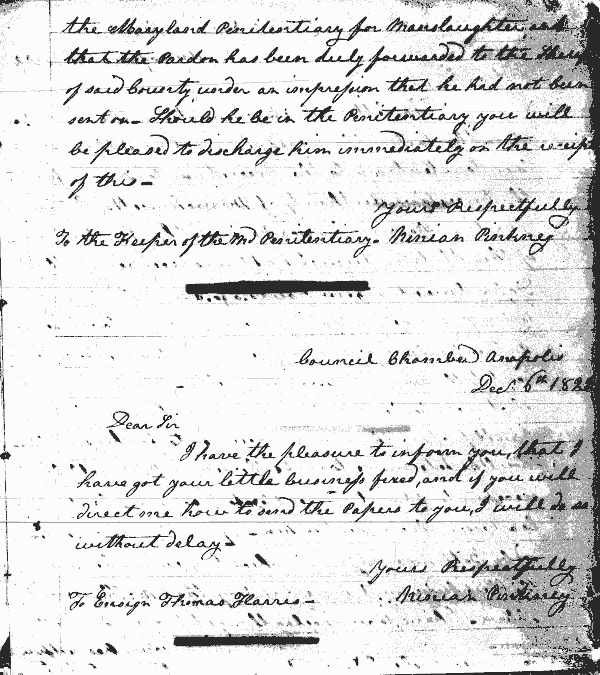 the Maryland Penitentiary for Manslaughter and
that the Pardon has been duly forwarded to the Sheriff
of said County under an impression that he had not been
sent on – Should he be in the Penitentiary you will
be pleased to discharge him immediately on the receipt
of this –
Yours Respectfully
To the Keeper of the Md Penitentiary. Ninian Pinkney
Council Chamber Anapolis
Decr. 6th 182
Dear Sir
I have the pleasure to inform you, that I
have got your little business fixed, and if you will
direct me how to send the Papers to you, I will do so
without delay –
Yours Respectfully
To Ensign Thomas Harris – Ninian Pinkney